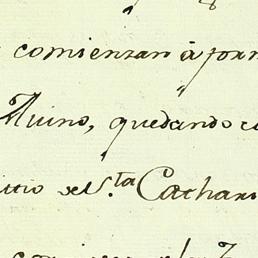 comienzan á for
Auino, quedando c
itio de S.ta Cathar